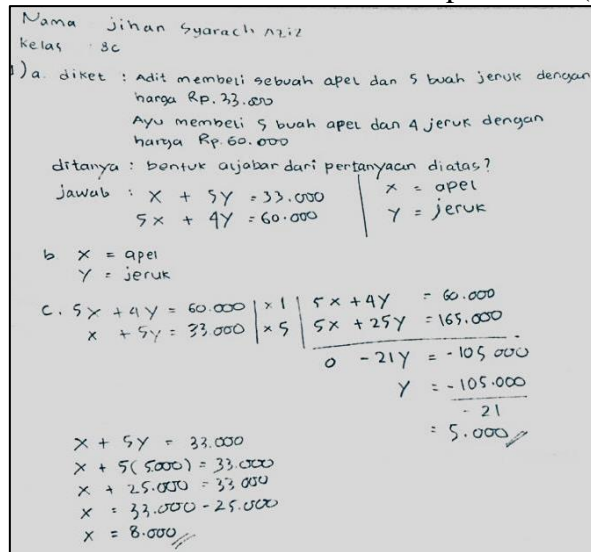 Nama Jihan Syarach Aziz
Kelas 8C
1) a. diket : Adit membeli sebuah apel dan 5 buah jeruk dengan
harga Rp. 33.000
Ayu membeli 5 buah apel dan 4 jeruk dengan
harga Rp. 60.000
ditanya : bentuk aljabar dari pertanyaan diatas?
jawab : x + 5y = 33.000 | x = apel
5x + 4y = 60.000 | y = jeruk
b x = apel
y = jeruk
c. 5x + 4y = 60.000 | x 1 | 5x + 4y = 60.000
x + 5y = 33.000 | x 5 | 5x + 25y = 165.000
0 - 21y = -105 000
y = -105.000
- 21
= 5.000
x + 5y = 33.000
x + 5(5000) = 33.000
x + 25.000 = 33 000
x = 33.000 - 25.000
x = 8.000